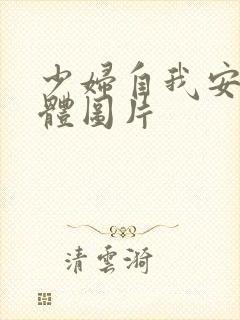 少婦自我安
體圖片
清雲漪